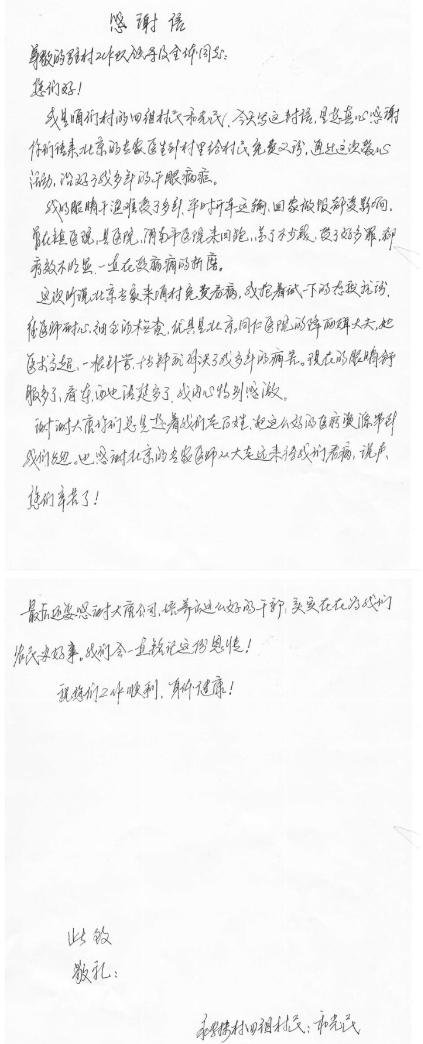 感谢信
尊敬的驻村工作队领导及全体同志:
您们好!
我是咱们村的四组村民和光民,今天写这封信,是想真心感谢
你们请来北京的专家医生到村里给村民免费义诊,通过这次爱心
活动,治好了我多年的干眼病症。
我的眼睛干涩难受了多年,平时开车运输,回家做饭都受影响,
曾在镇医院,县医院,渭南市医院来回跑,花了不少钱,受了好多罪,都
疗效不明显,一直在受病痛的折磨。
这次听说北京专家来咱村免费看病,我抱着试一下的态度就诊,
经医师耐心,细全的检查,尤其是北京同仁医院的陈大夫,她
医术高超,一根针管,十分钟就解决了我多年的病苦。现在的眼睛舒
服多了,看东西也清楚多了,我内心特别感激。
谢谢大唐你们总是想着我们老百姓,把这么好的医疗资源带到
我们身边。也感谢北京的专家医师从大老远来给我们看病,说声,
您们辛苦了!
最后还要感谢大唐公司,培养出这么好的干部,实实在在为我们
农民办好事。我们会一直铭记这份恩情!
祝您们工作顺利,身体健康!
此致
敬礼:
村四组村民:和光民